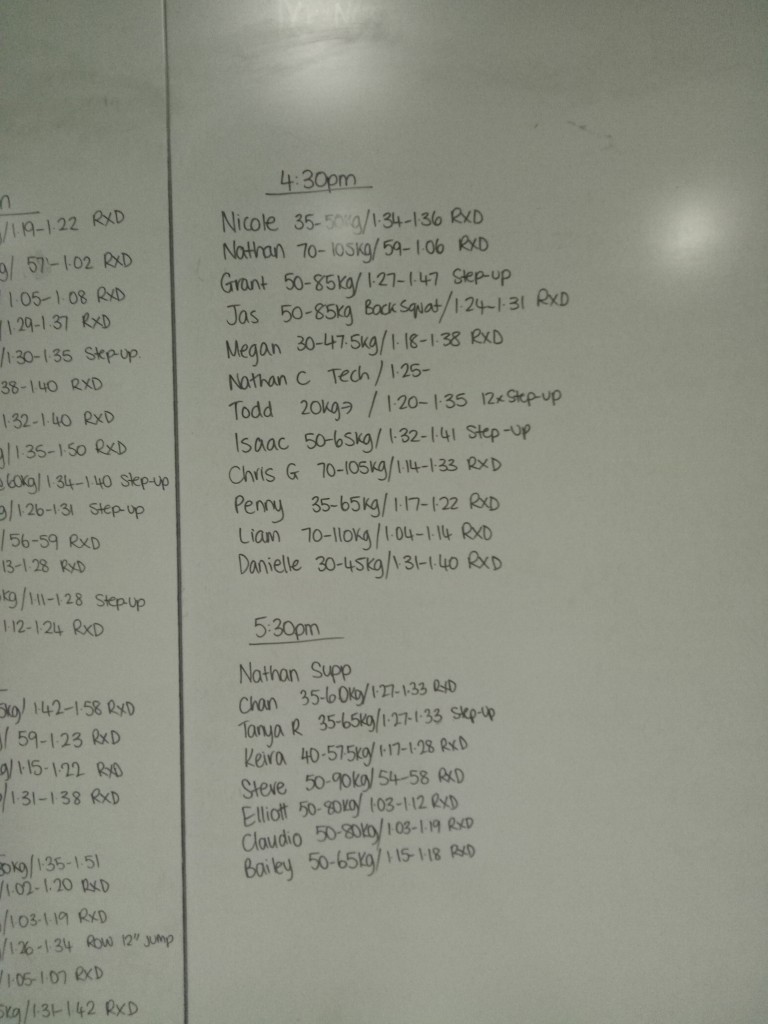 n
/1.19-1.22 RXD
g/ 57-1.02 RXD
/1.05-1.08 RXD
/1.29-1.37 RXD
/1.30-1.35 Step-up.
38-1.40 RXD
1.32-1.40 RXD
g/1.35-1.50 RXD
60kg/1.34-1.40 Step-up
g/1.26-1.31 Step-up
/56-59 RXD
13-1.28 RXD
kg/1.11-1.28 Step-up
1.12-1.24 RXD
5kg/ 1.42-1.58 RXD
/ 59-1.23 RXD
g/1.15-1.22 RXD
/1.31-1.38 RXD
80kg/1.35-1.51
/1.02-1.20 RXD
/1.03-1.19 RXD
/1.26-1.34 Row 12" Jump
/1.05-1.07 RXD
5kg/1.31-1.42 RXD
4:30pm
Nicole 35-50kg/1.34-1.36 RXD
Nathan 70-105kg/59-1.06 RXD
Grant 50-85kg/1.27-1.47 Step-up
Jas 50-85kg Back Squat/1.24-1.31 RXD
Megan 30-47.5kg/1.18-1.38 RXD
Nathan C Tech/1.25-
Todd 20kg→ /1.20-1.35 12x Step-up
Isaac 50-65kg/1.32-1.41 Step-up
Chris G 70-105kg/1.14-1.33 RXD
Penny 35-65kg/1.17-1.22 RXD
Liam 70-110kg/1.04-1.14 RXD
Danielle 30-45kg/1.31-1.40 RXD
5:30pm
Nathan Supp
Chan 35-60kg/1.27-1.33 RXD
Tanya R 35-65kg/1.27-1.33 Step-up
Keira 40-57.5kg/1.17-1.28 RXD
Steve 50-90kg/54-58 RXD
Elliott 50-80kg/1.03-1.12 RXD
Claudio 50-80kg/1.03-1.19 RXD
Bailey 50-65kg/1.15-1.18 RXD